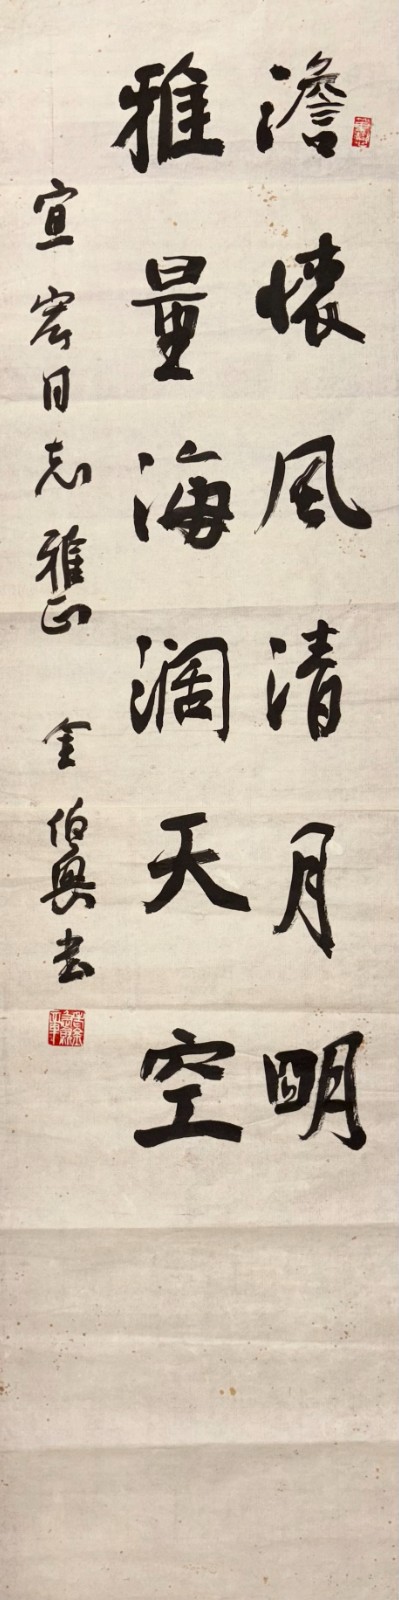 澹懷風清月明
雅量海阔天空
宣宏同志雅正 金伯興书